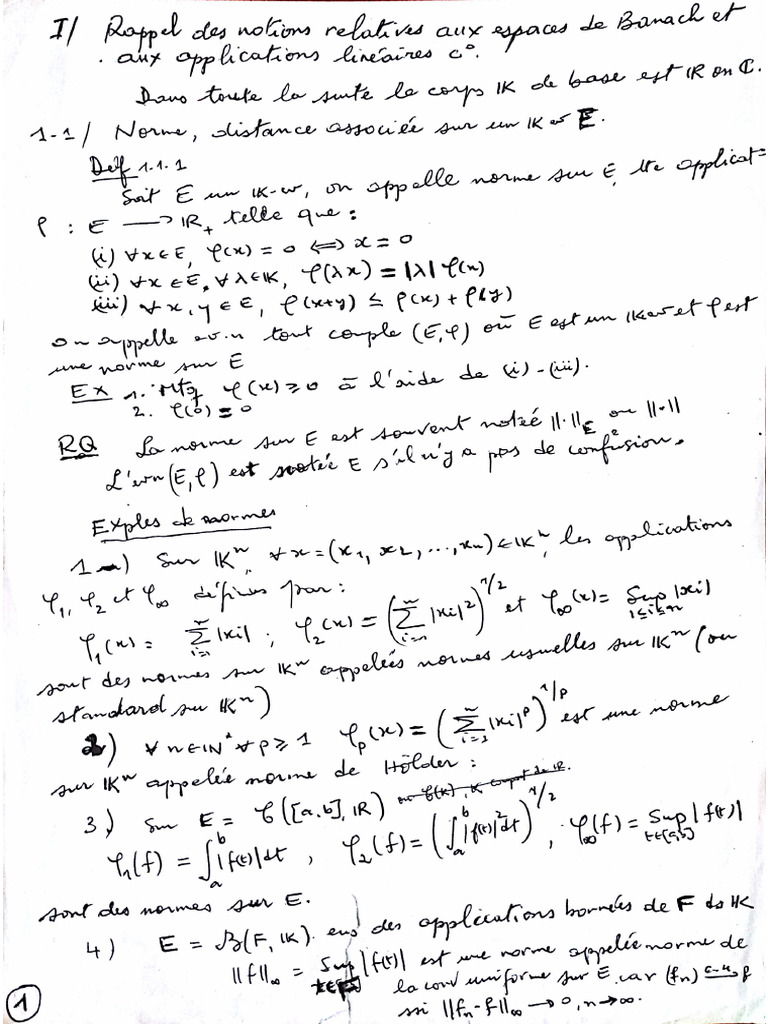 I/ Rappel des notions relatives aux espaces de Banach et
aux applications linéaires c°.
Dans toute la suite le corps IK de base est IR ou ℂ.
1-1/ Norme, distance associée sur un IK ev E.
Déf 1.1.1
Soit E un IK-ev, on appelle norme sur E, tte applicat=
φ : E ⟶ IR₊ telle que :
(i) ∀x∈E, φ(x) = 0 ⟺ x = 0
(ii) ∀x∈E, ∀λ∈IK, φ(λx) = |λ| φ(x)
(iii) ∀x, y ∈ E, φ(x+y) ≤ φ(x) + φ(y)
on appelle ev.n tout couple (E, φ) où E est un IK ev et φ est
une norme sur E
Ex 1. Mtq φ(x) ≥ 0 à l'aide de (i) - (iii).
2. φ(0) = 0
RQ La norme sur E est souvent notée ||·||_E ou ||·||
L'evn (E, φ) est notée E s'il n'y a pas de confusion.
Exples de normes
1) Sur IKⁿ, ∀x = (x₁, x₂, ..., xₙ) ∈ IKⁿ, les applications
φ₁, φ₂ et φ∞ définies par :
φ₁(x) = ∑_{i=1}^{n} |xi| ; φ₂(x) = (∑_{i=1}^{n} |xi|²)^{1/2} et φ∞(x) = Sup_{1≤i≤n} |xi|
sont des normes sur IKⁿ appelées normes usuelles sur IKⁿ (ou
standard su IKⁿ)
2) ∀n∈IN* ∀p ≥ 1 φ_p(x) = (∑_{i=1}^{n} |xi|^p)^{1/p} est une norme
sur IKⁿ appelée norme de Hölder :
3) Sur E = 𝒞([a,b], IR) ou 𝒞(K), K compact de IR.
φ₁(f) = ∫_a^b |f(t)| dt , φ₂(f) = (∫_a^b |f(t)|² dt)^{1/2} , φ∞(f) = Sup_{t∈[a,b]} |f(t)|
sont des normes sur E.
4) E = ℬ(F, IK). ens des applications bornées de F ds IK
||f||∞ = Sup_{t∈F} |f(t)| est une norme appelée norme de
la conv uniforme sur E. car (fₙ) ⟶^{c-u} f
ssi ||fₙ - f||∞ ⟶ 0, n → ∞.
1